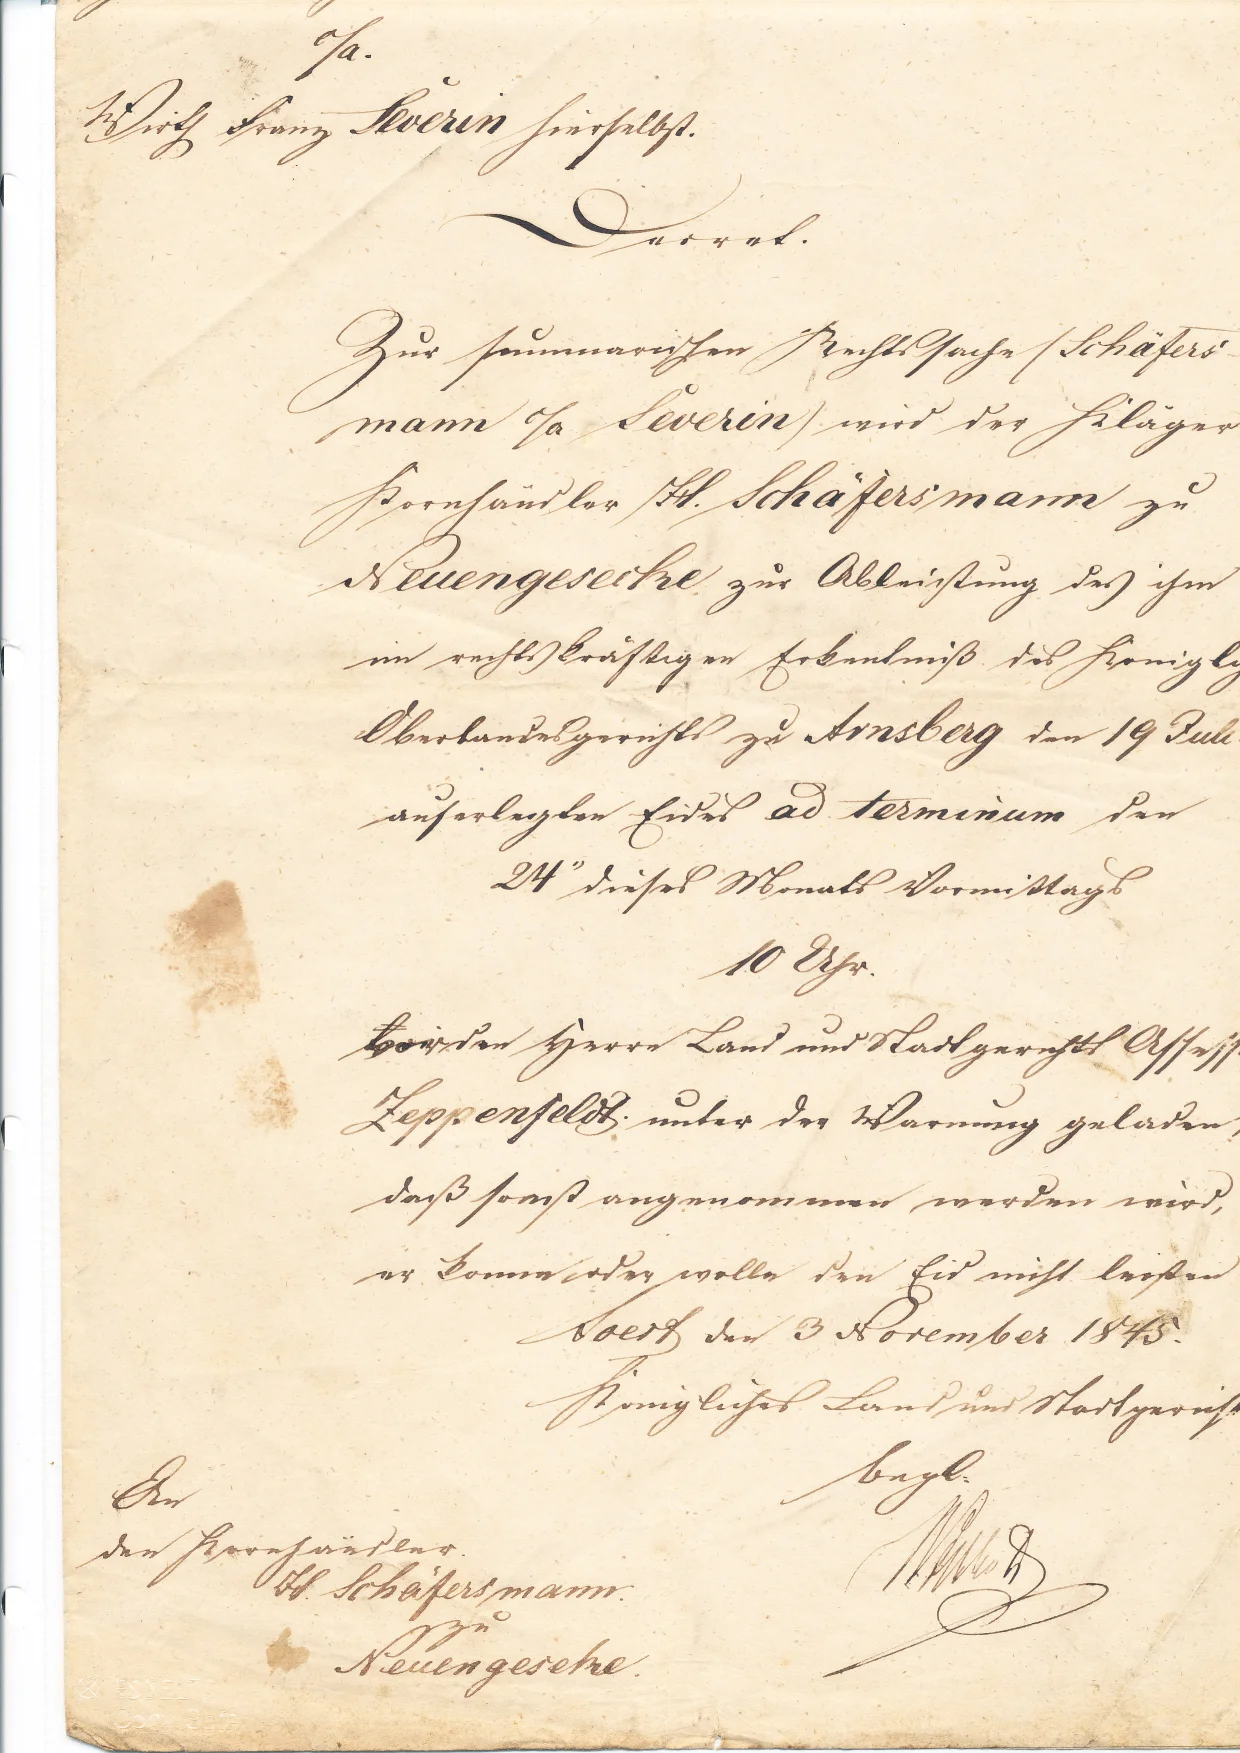 c/a.
Wirth Franz Severin hierselbst.
Decret.
Zur summarischen Rechtssache (Schäfers-
mann c/a Severin) wird der Kläger
Kornhändler H. Schäfersmann zu
Neuengesecke zur Ableistung des ihm
im rechtskräftigen Erkentniß des Königlg
Oberlandesgerichts zu Arnsberg den 19 Juli
auferlegten Eides ad terminum den
24" dieses Monats Vormittags
10 Uhr.
vor den Herrn Land und Stadtgerichts Assess
Zeppenfeldt. unter der Warnung geladen,
daß sonst angenommen werden wird,
er könne oder wolle den Eid nicht leisten
Soest den 3 November 1845.
Königliches Land und Stadtgericht
begl.
An
den Kornhändler.
H. Schäfersmann.
zu
Neuengeseke.